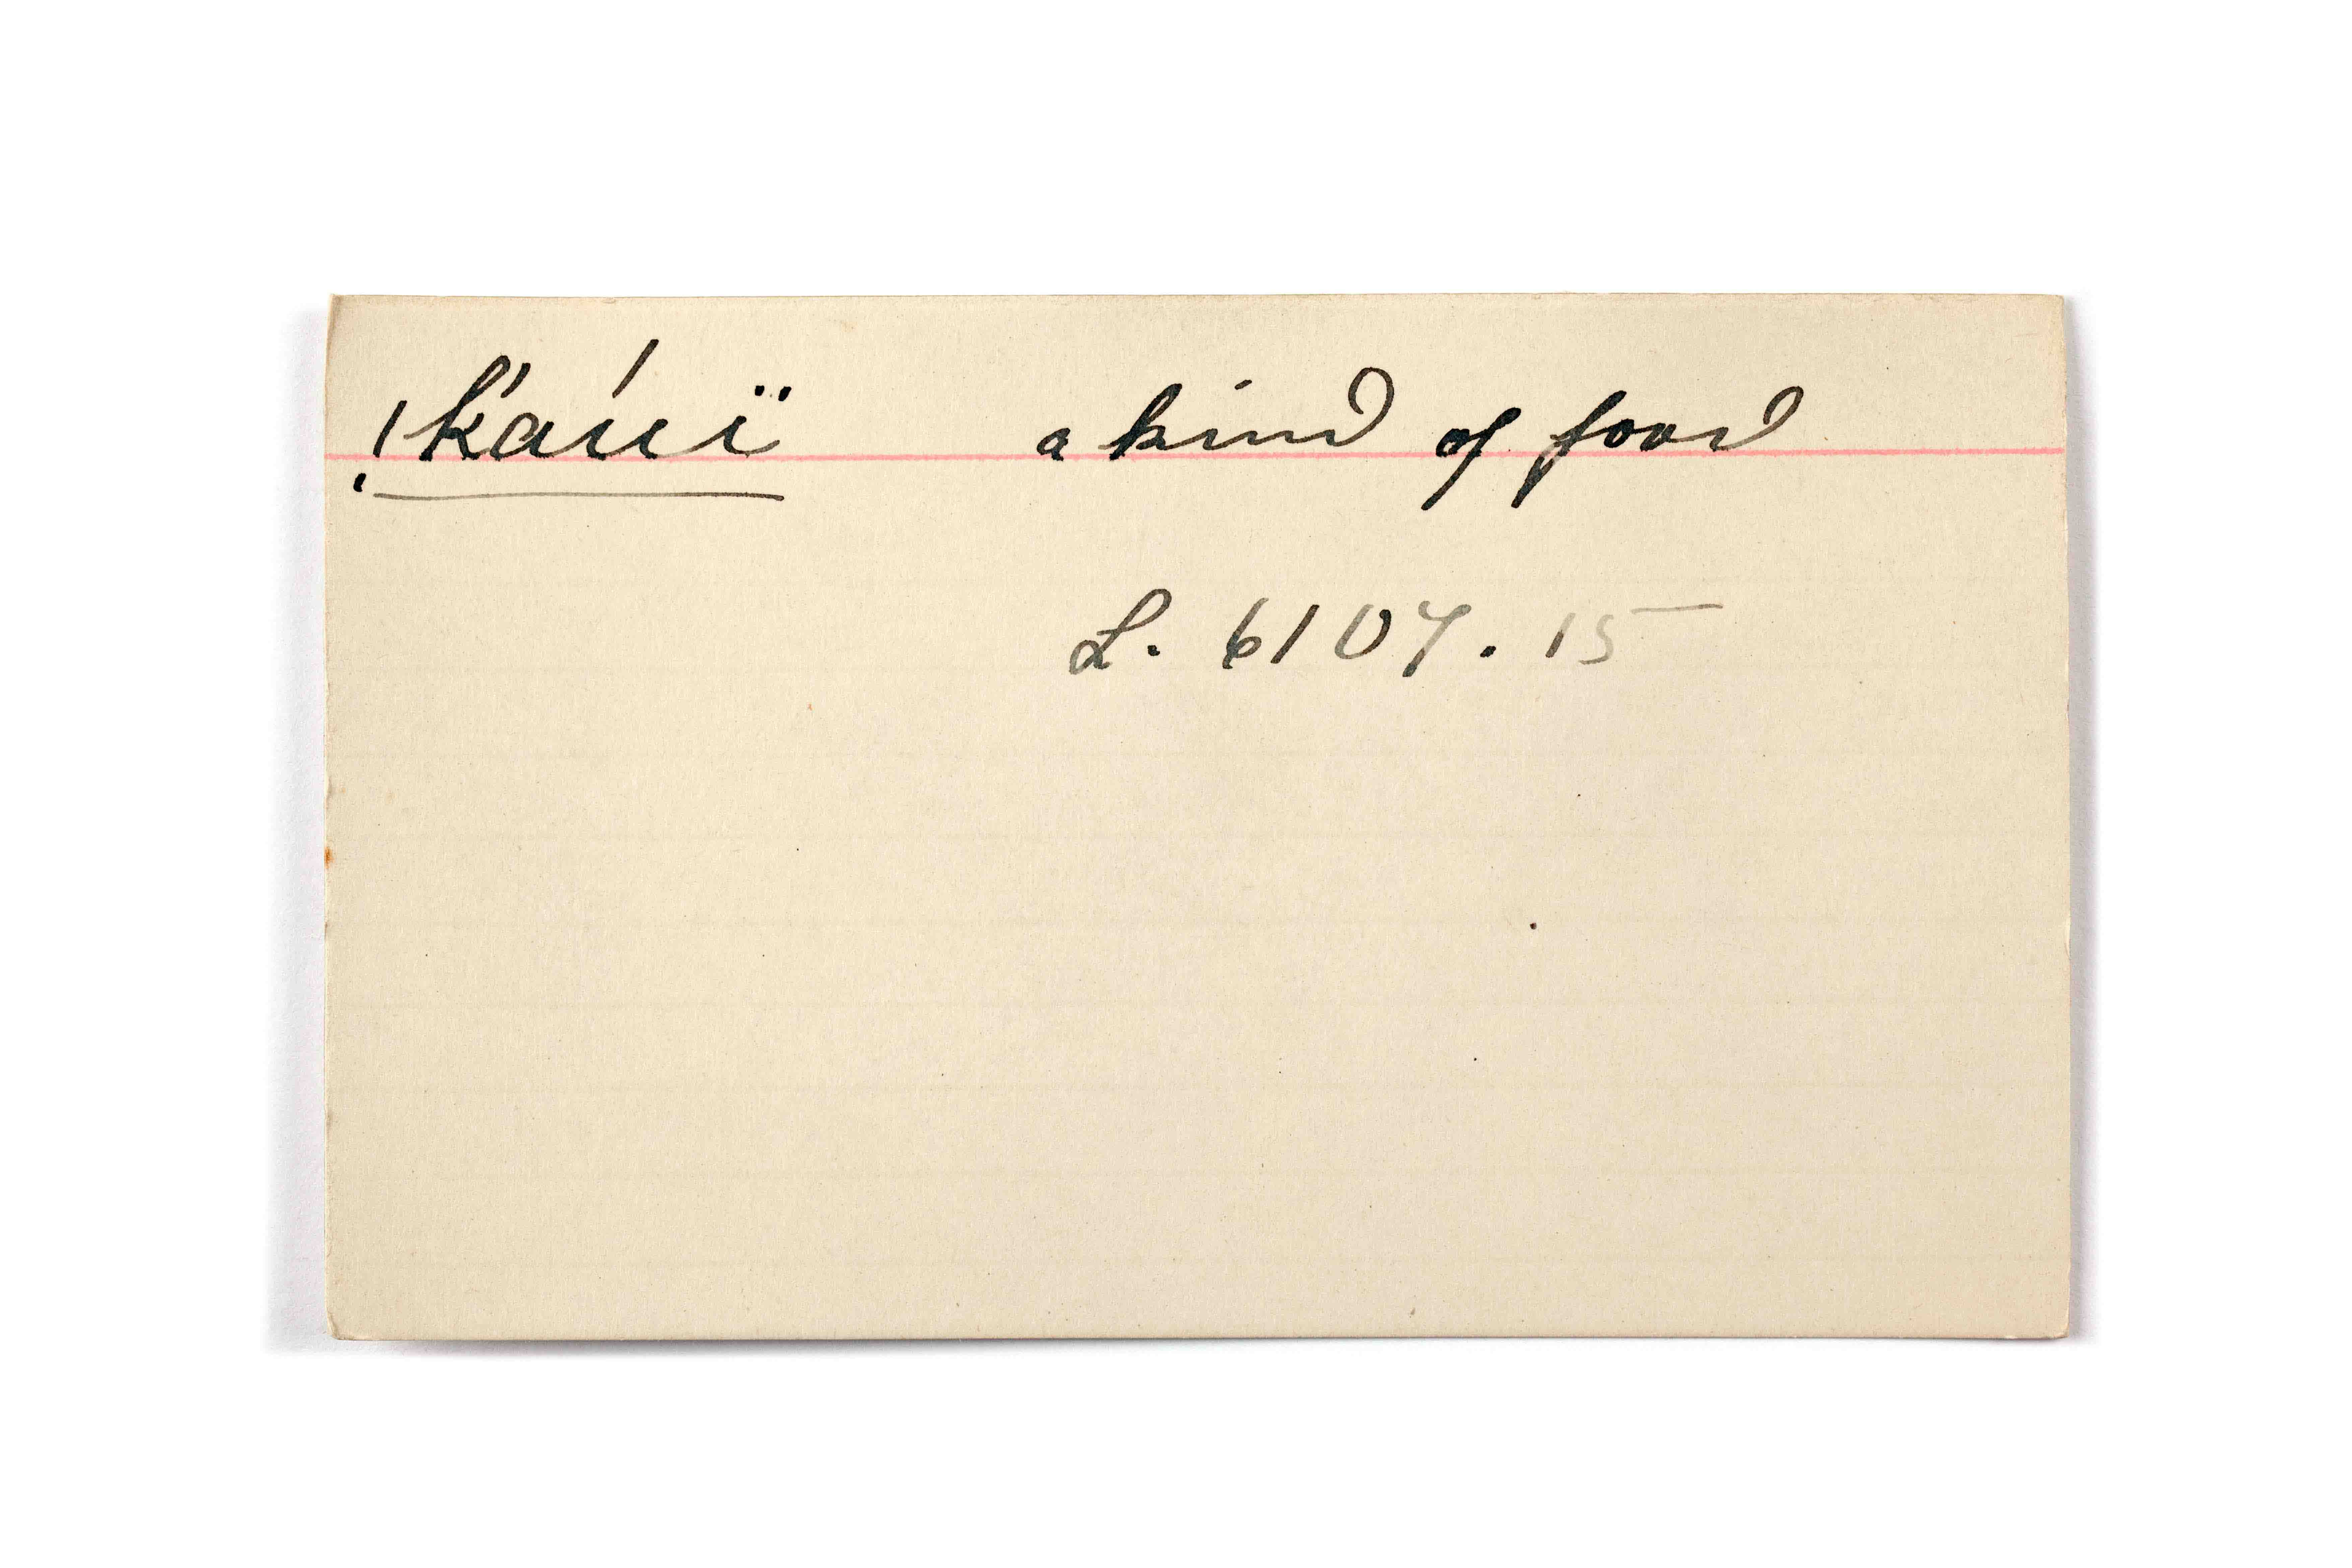 !k'áuï a kind of food
L. 6107. 15